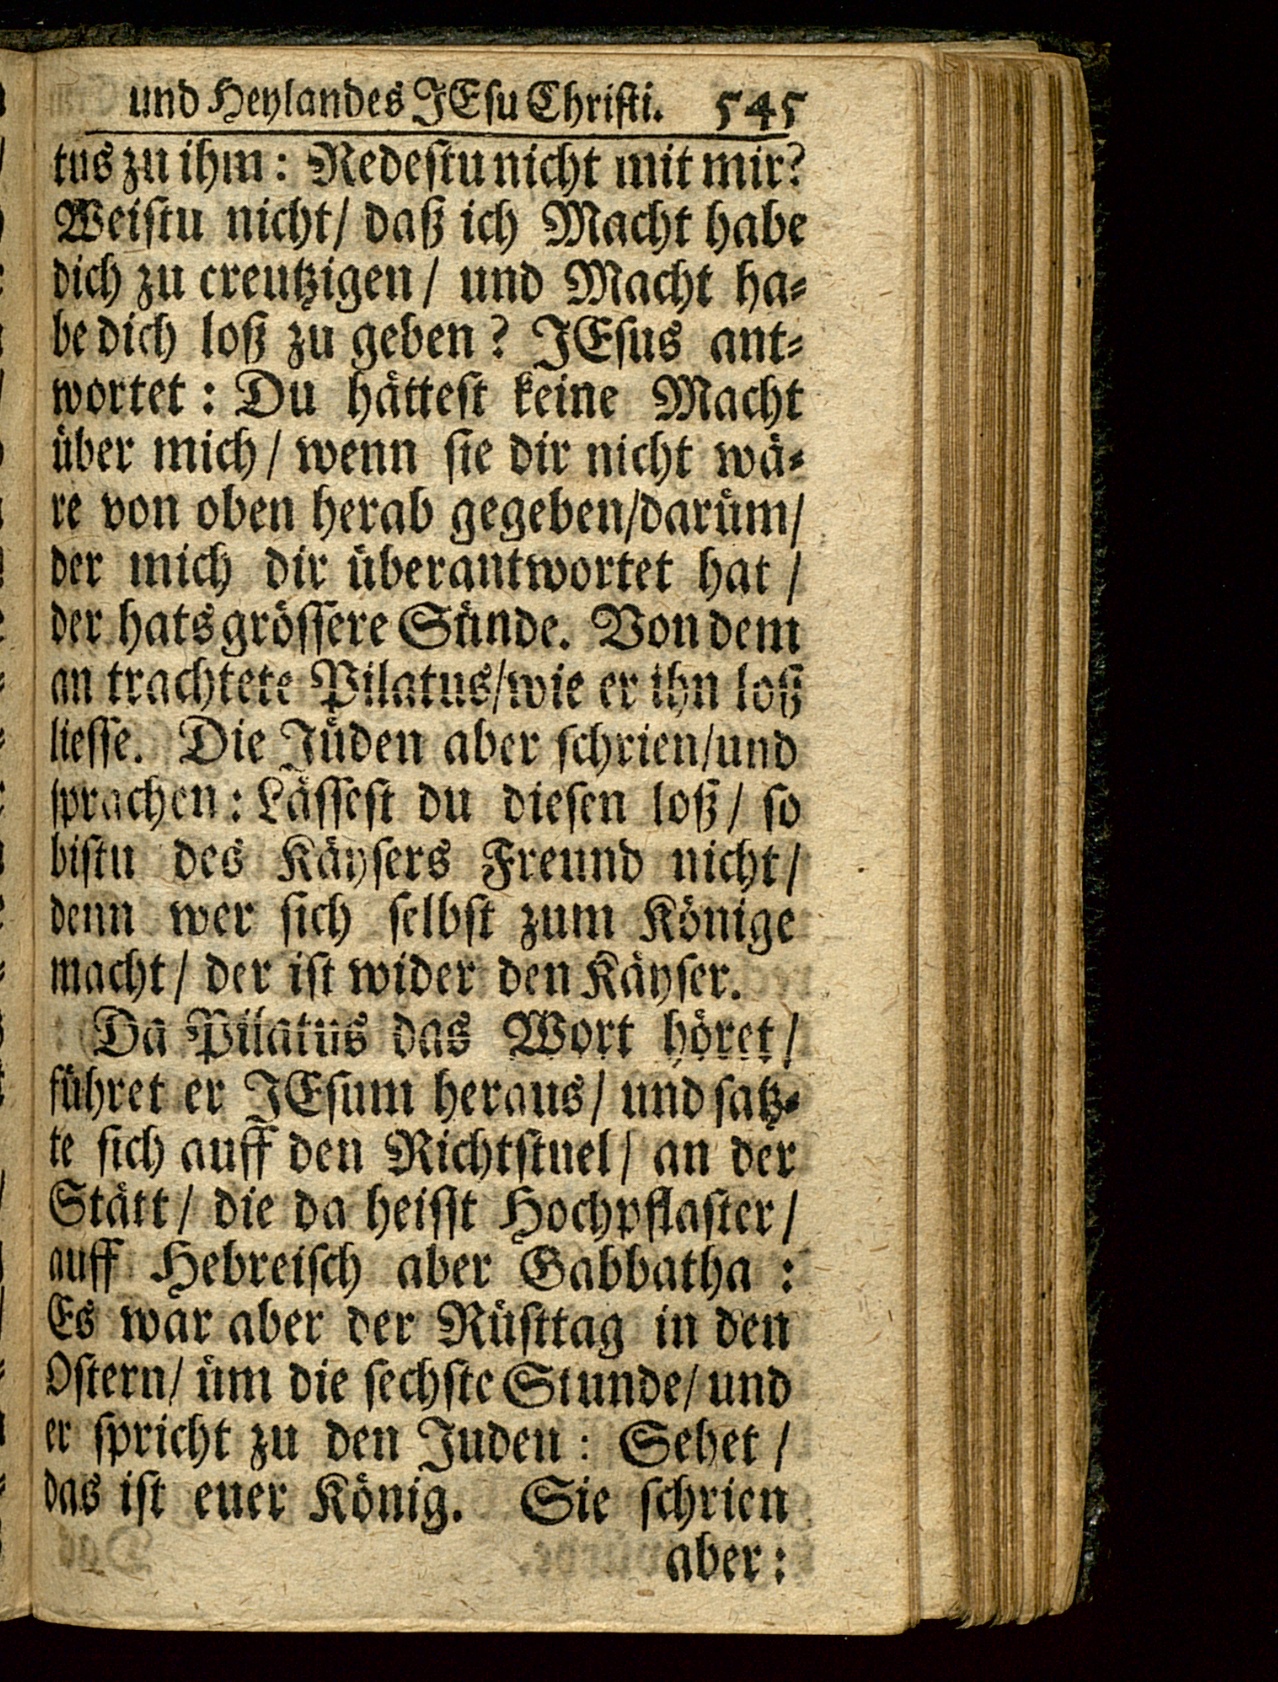 und Heylandes JEsu Christi. 545
tus zu ihm: Redestu nicht mit mir?
Weistu nicht/ daß ich Macht habe
dich zu creutzigen/ und Macht ha-
be dich loß zu geben? JEsus ant-
wortet: Du hättest keine Macht
über mich/ wenn sie dir nicht wä-
re von oben herab gegeben/darüm/
der mich dir überantwortet hat /
der hats grössere Sünde. Von dem
an trachtete Pilatus/wie er ihn loß
liesse. Die Jüden aber schrien/und
sprachen: Lässest du diesen loß/ so
bistu des Käysers Freund nicht/
denn wer sich selbst zum Könige
macht/ der ist wider den Käyser.
Da Pilatus das Wort höret/
führet er JEsum heraus/ und satz-
te sich auff den Richtstuel/ an der
Stätt/ die da heisst Hochpflaster/
auff Hebreisch aber Gabbatha :
Es war aber der Rüsttag in den
Ostern/ üm die sechste Stunde/ und
er spricht zu den Juden: Sehet /
das ist euer König. Sie schrien
aber: